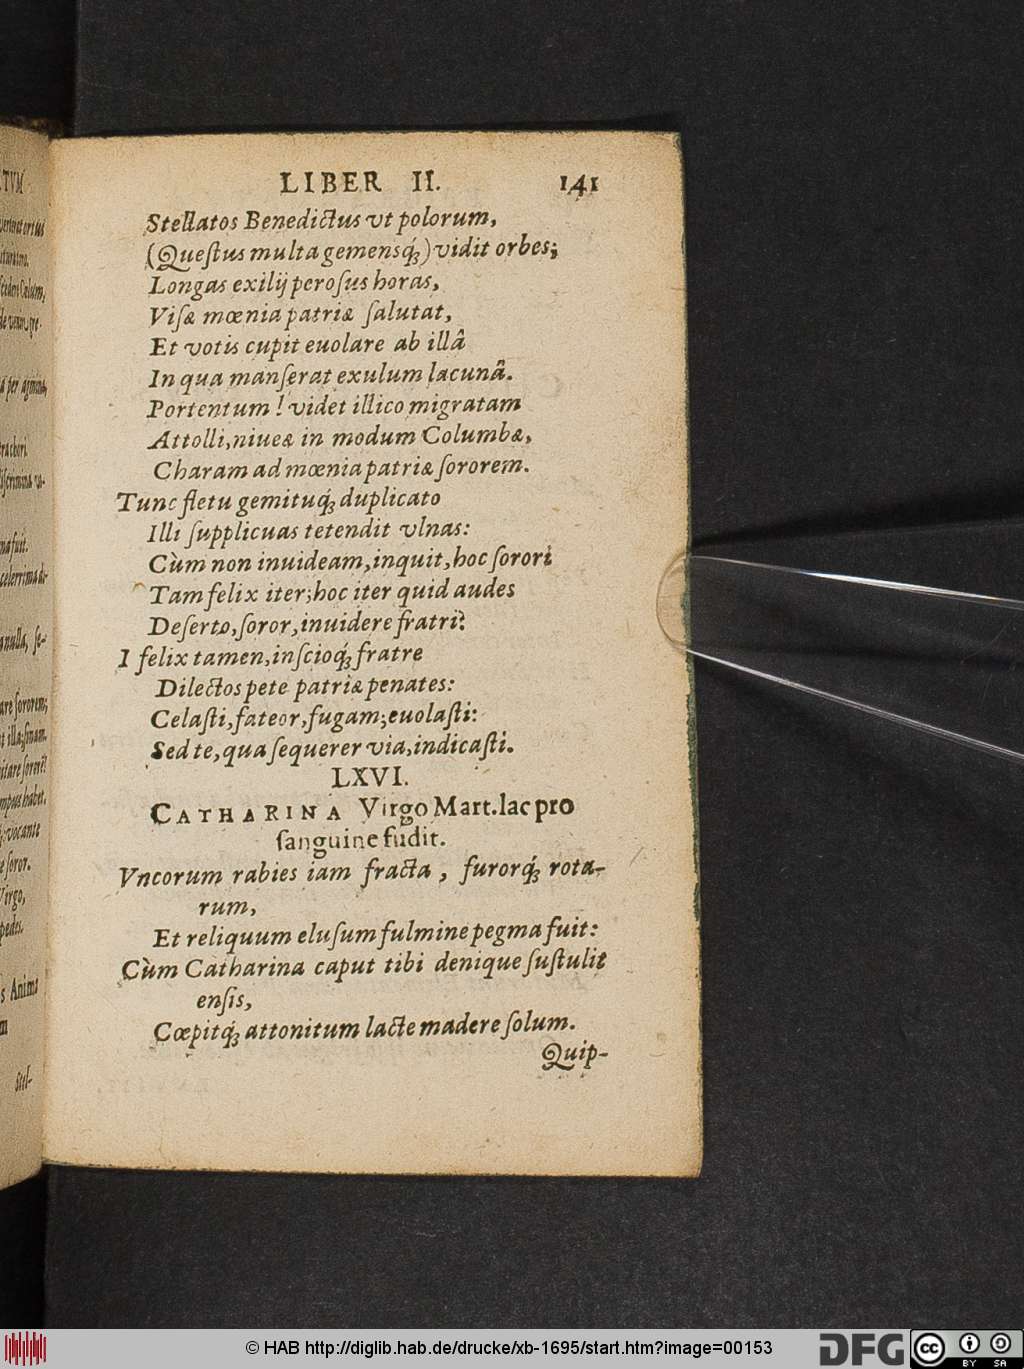 LIBER II. 141
Stellatos Benedictus vt polorum,
(Questus multa gemensq́ꝫ) vidit orbes;
Longas exilij perosus horas,
Visæ mœnia patriæ salutat,
Et votis cupit euolare ab illâ
In qua manserat exulum lacunâ.
Portentum! videt illico migratam
Attolli, niueæ in modum Columbæ,
Charam ad mœnia patriæ sororem.
Tunc fletu gemituq́ꝫ duplicato
Illi supplicuas tetendit vlnas:
Cùm non inuideam, inquit, hoc sorori
Tam felix iter; hoc iter quid audes
Deserto, soror, inuidere fratri?
I felix tamen, inscioq́ꝫ fratre
Dilectos pete patriæ penates:
Celasti, fateor, fugam; euolasti:
Sed te, qua sequerer via, indicasti.
LXVI.
CATHARINA Virgo Mart. lac pro
sanguine fudit.
Vncorum rabies iam fracta, furorq́ꝫ rota-
rum,
Et reliquum elusum fulmine pegma fuit:
Cùm Catharina caput tibi denique sustulit
ensis,
Cœpitq́ꝫ attonitum lacte madere solum.
Quip-
© HAB http://diglib.hab.de/drucke/xb-1695/start.htm?image=00153
DFG
cc BY SA